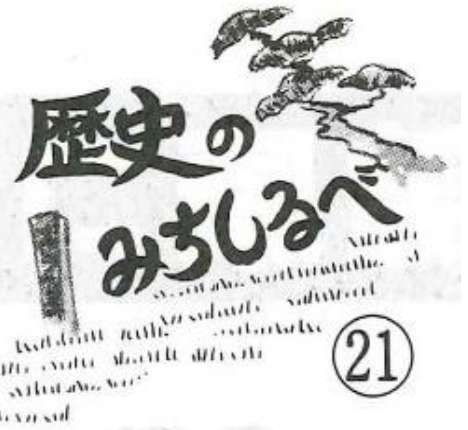 歴史の
みちしるべ
21